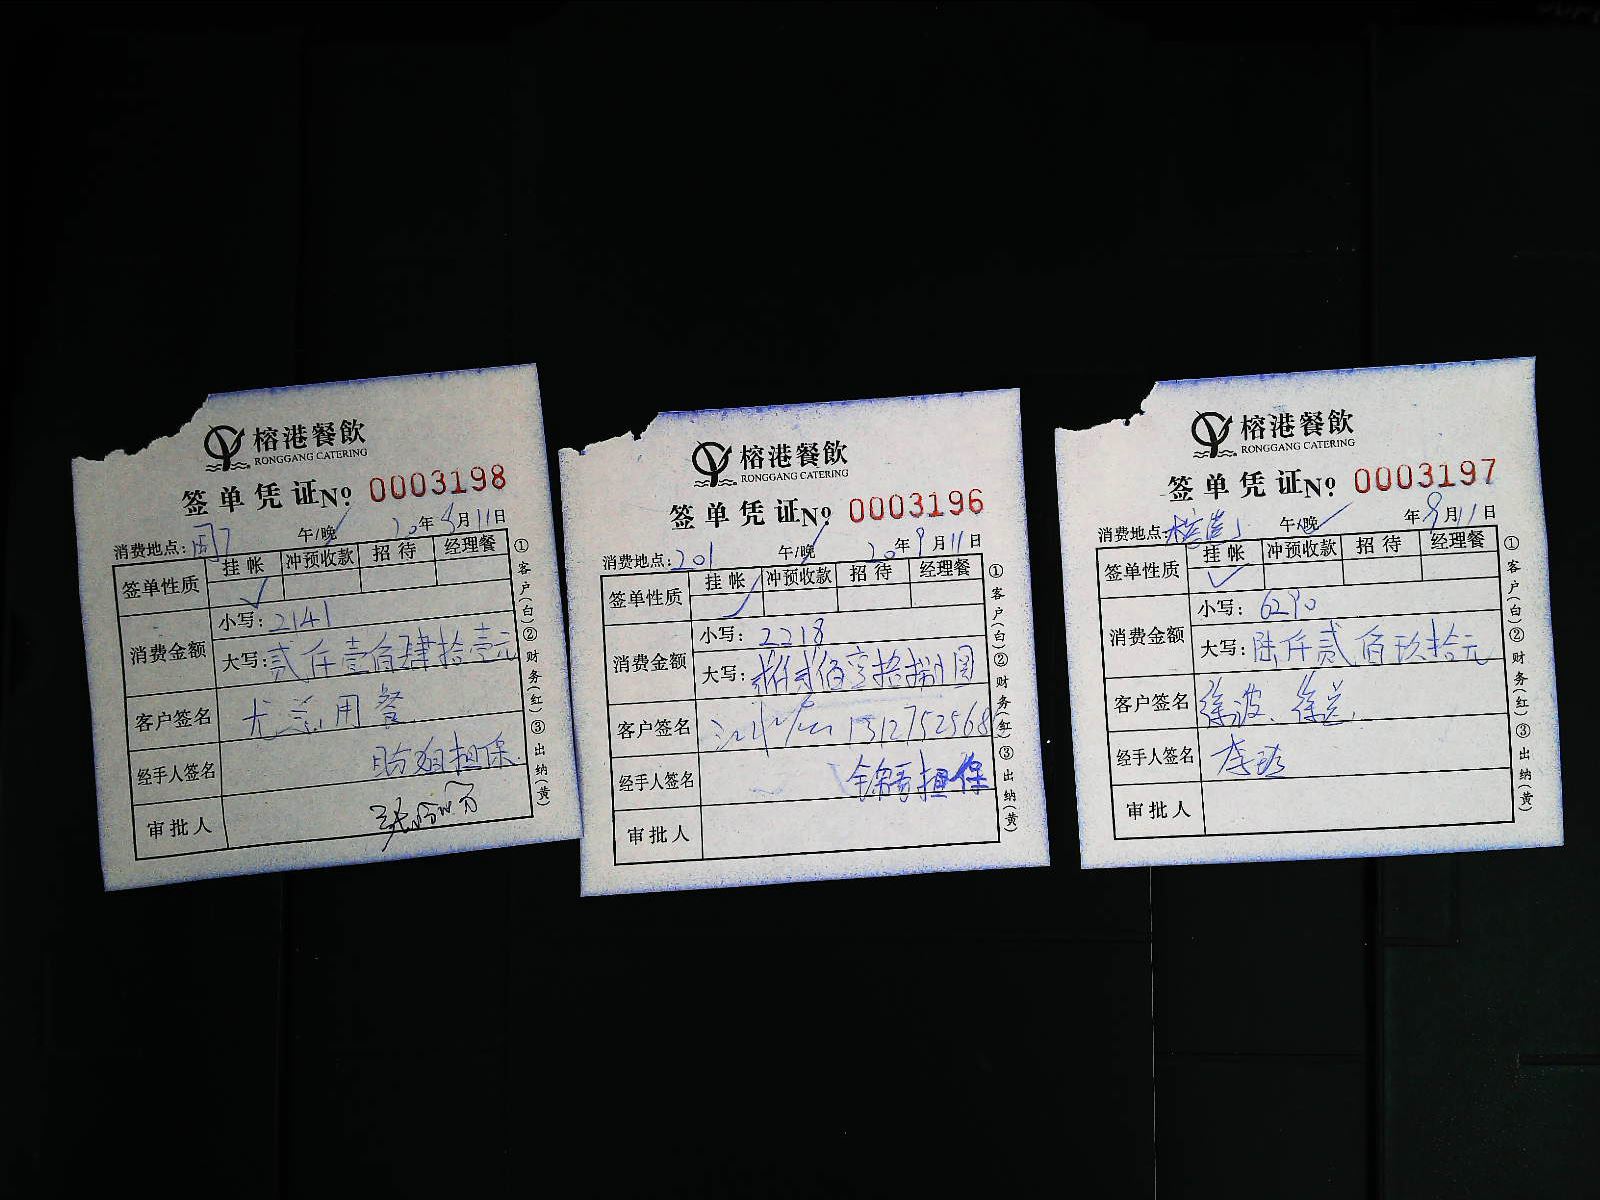 榕港餐飲
RONGGANG CATERING
签单凭证№ 0003198
消费地点: 午/晚 20年9月11日
签单性质 挂帐 冲预收款 招待 经理餐
消费金额
小写: 2141
大写: 贰仟壹佰肆拾壹元
客户签名 尤总用餐
经手人签名 担保
审批人
①客户(白)②财务(红)③出纳(黄)
榕港餐飲
RONGGANG CATERING
签单凭证№ 0003196
消费地点: 201 午/晚 20年9月11日
签单性质 挂帐 冲预收款 招待 经理餐
消费金额
小写: 2218
大写: 贰仟贰佰壹拾捌圆
客户签名 1312752568
经手人签名 担保
审批人
①客户(白)②财务(红)③出纳(黄)
榕港餐飲
RONGGANG CATERING
签单凭证№ 0003197
消费地点: 午/晚 年9月11日
签单性质 挂帐 冲预收款 招待 经理餐
消费金额
小写: 6290
大写: 陆仟贰佰玖拾元
客户签名 徐波、徐总
经手人签名
审批人
①客户(白)②财务(红)③出纳(黄)